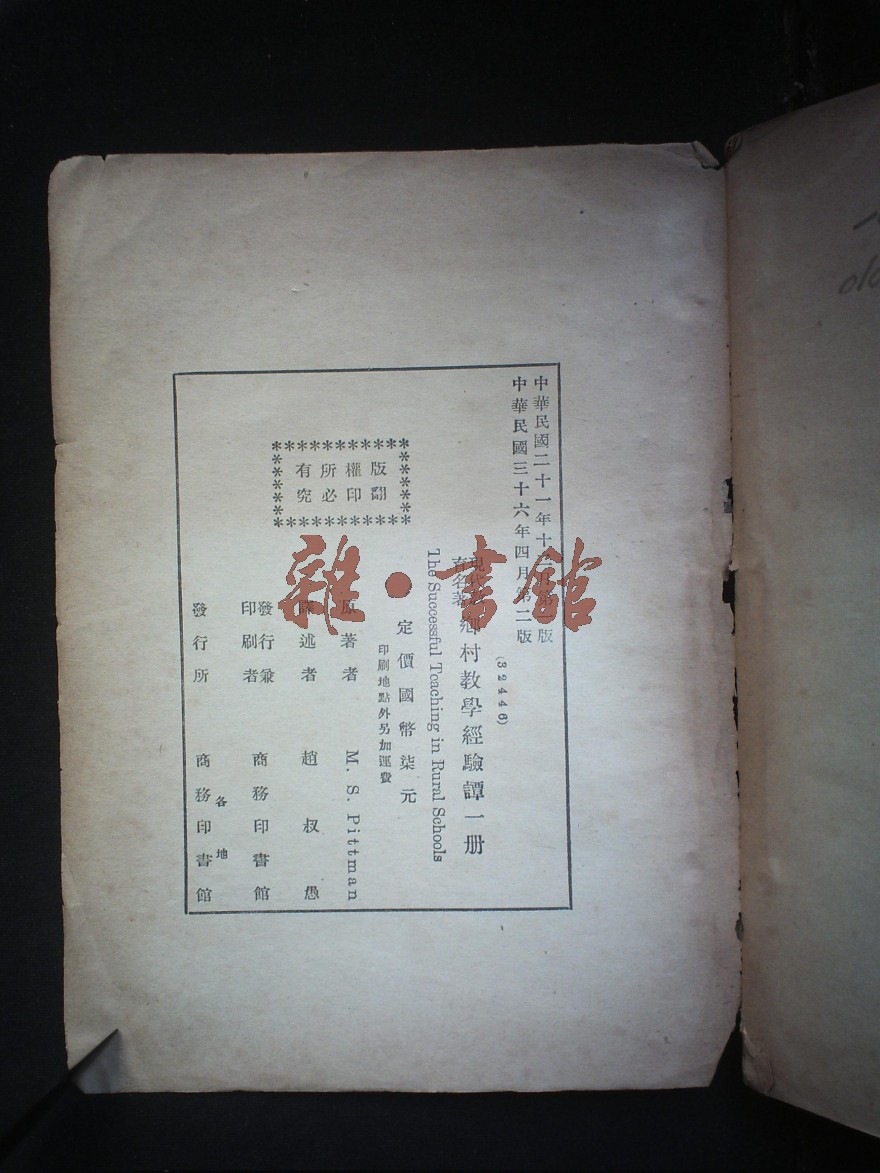 中華民國二十一年十
版
中華民國三十六年四月第二版
(32446)
鄉村教學經驗譚一册
The Successful Teaching in Rural Schools
定價國幣柒元
印刷地點外另加運費
版權所有
翻印必究
原著者 M. S. Pittman
述者 趙叔愚
發行兼
印刷者 商務印書館
發行所 各地
商務印書館
雜·書館